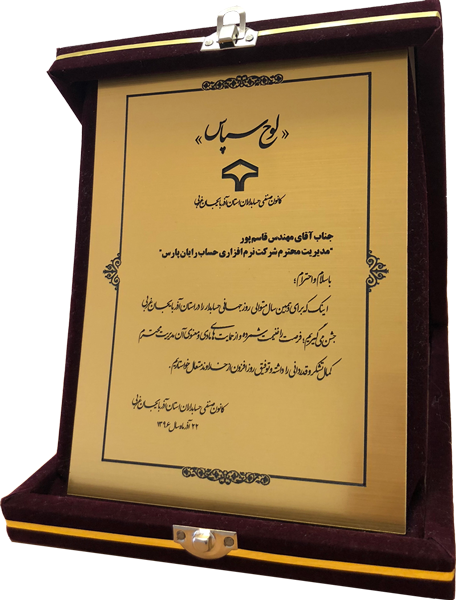 «لوح سپاس»
کانون صنفی حسابداران استان آذربایجان غربی
جناب آقای مهندس قاسم‌پور
"مدیریت محترم شرکت نرم افزاری حساب رایان پارس"
با سلام و احترام؛
اینک که برای دومین سال متوالی روز جهانی حسابدار را در استان آذربایجان غربی
جشن می گیریم؛ فرصت را غنیمت شمرده و از حمایت های مادی و معنوی آن مدیریت محترم
کمال تشکر و قدردانی را داشته و توفیق روز افزون از خداوند متعال خواستاریم.
کانون صنفی حسابداران استان آذربایجان غربی
۲۲ آذر ماه سال ۱۳۹۶